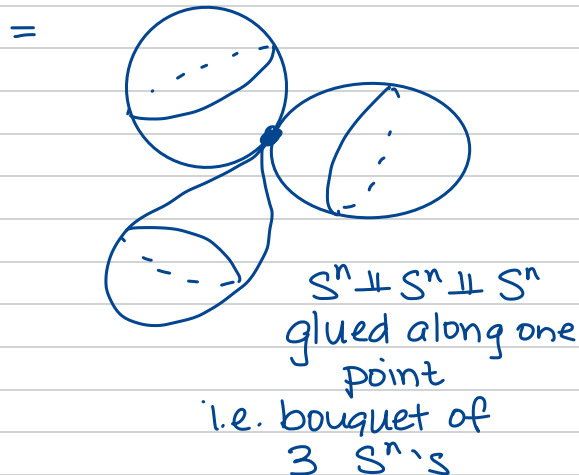 =
Sⁿ ⊥⊥ Sⁿ ⊥⊥ Sⁿ
glued along one
point
i.e. bouquet of
3 Sⁿ's